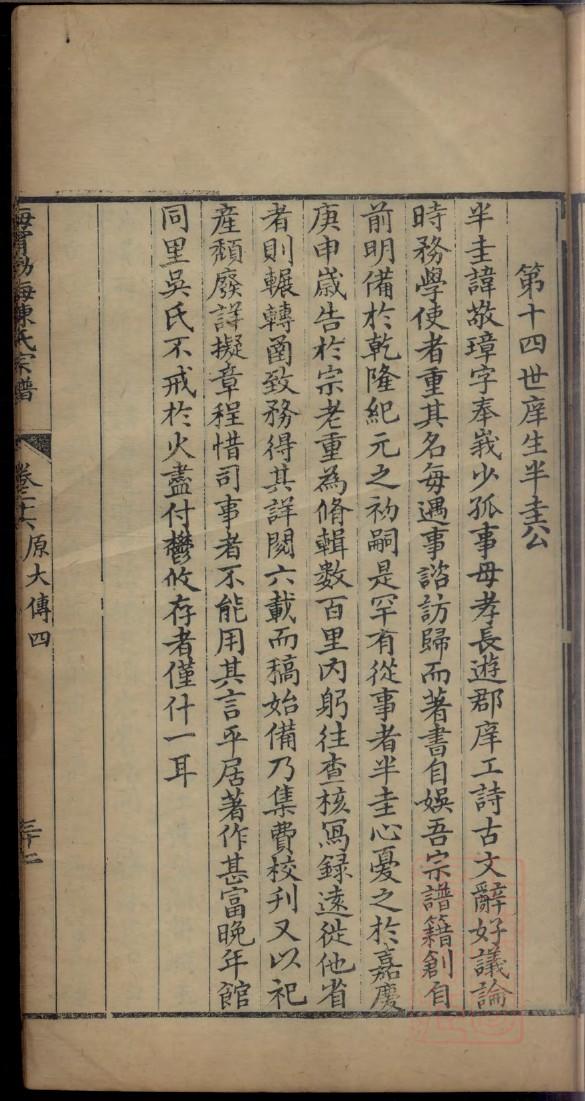 第十四世庠生半圭公
半圭諱敬璋字奉峩少孤事母孝長遊郡庠工詩古文辭好議論
時務學使者重其名每遇事諮訪歸而著書自娛吾宗譜籍創自
前明備於乾隆紀元之初嗣是罕有從事者半圭心憂之於嘉慶
庚申歲告於宗老重為脩輯數百里內躬往查核寫録遠從他省
者則輾轉凾致務得其詳閱六載而稿始備乃集費校刋又以祀
產頹廢詳擬章程惜司事者不能用其言平居著作甚富晚年館
同里吳氏不戒於火盡付鬱攸存者僅什一耳
海寧渤海陳氏宗譜
卷二十六 原大傳四